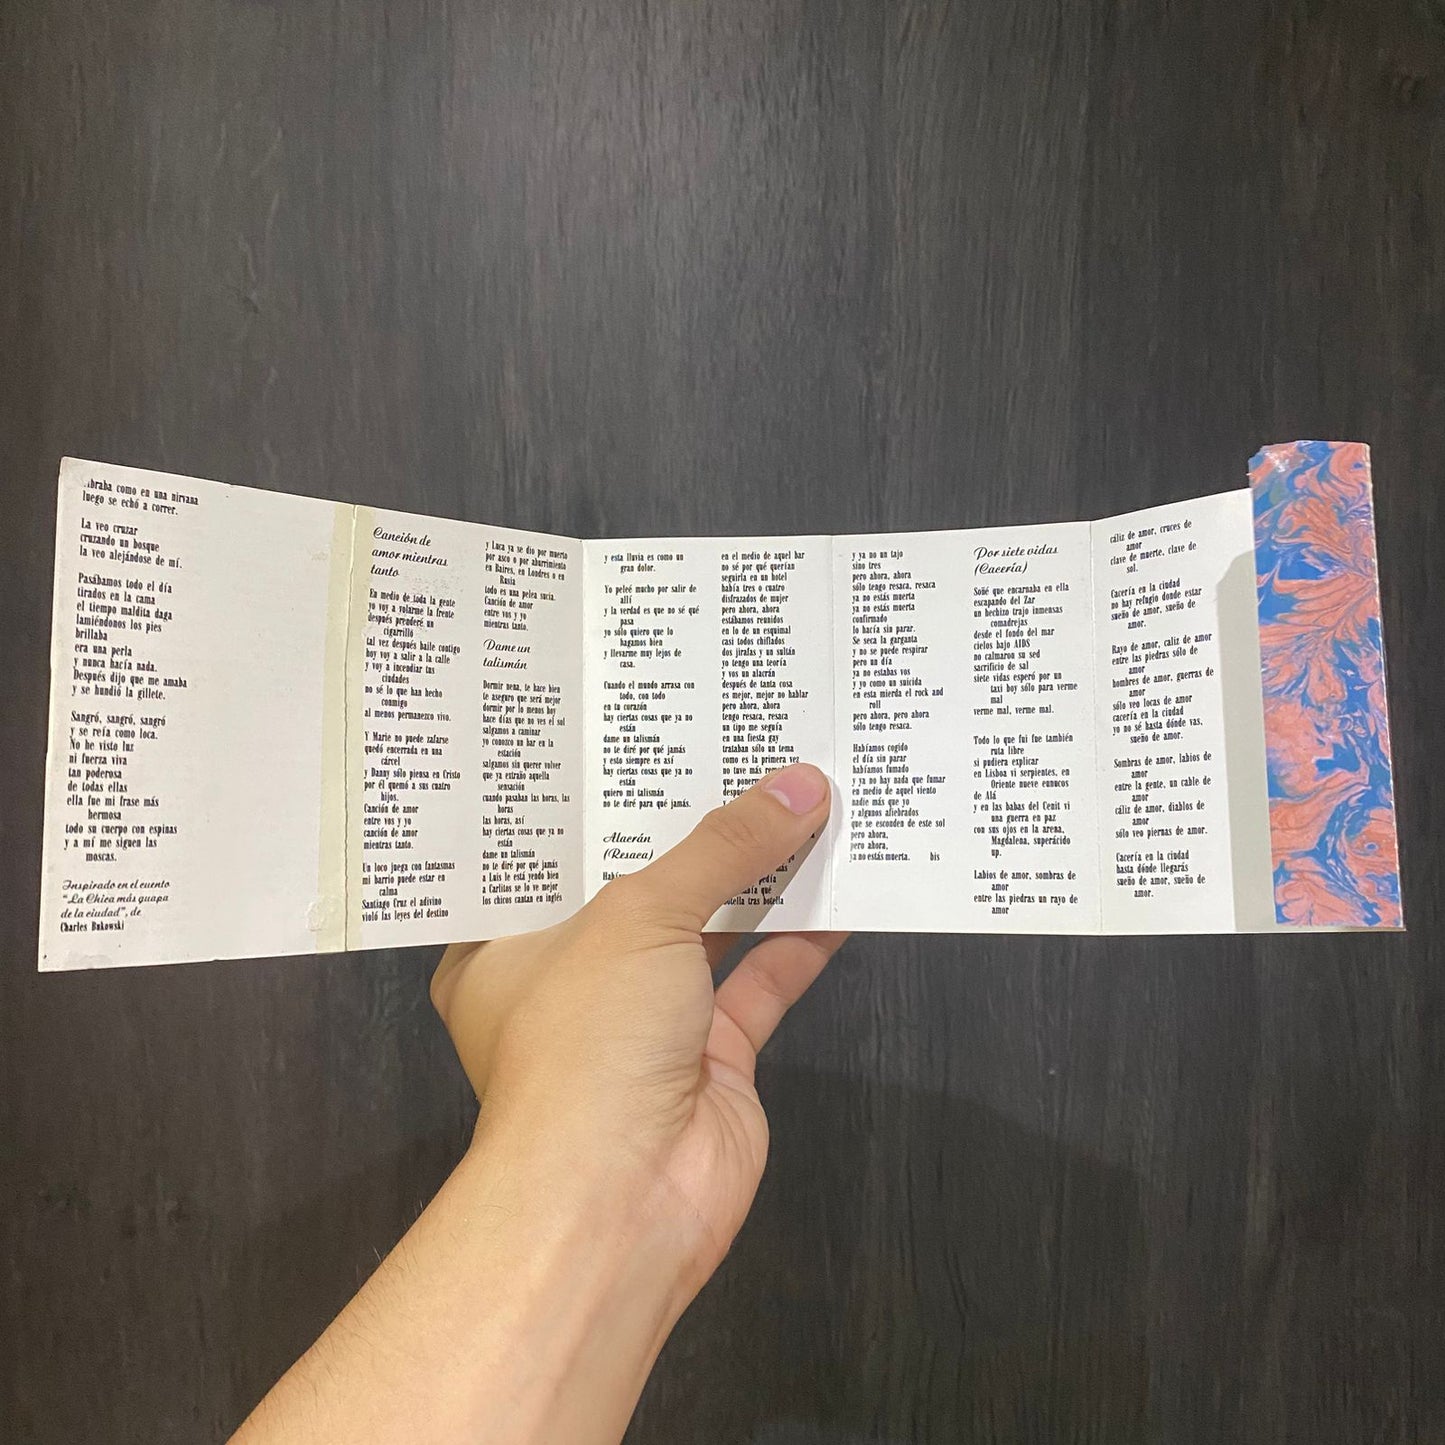 braba como en una nirvana
luego se echó a correr.
La veo cruzar
cruzando un bosque
la veo alejándose de mí.
Pasábamos todo el día
tirados en la cama
el tiempo maldita daga
lamiéndonos los pies
brillaba
era una perla
y nunca hacía nada.
Después dijo que me amaba
y se hundió la gillete.
Sangró, sangró, sangró
y se reía como loca.
No he visto luz
ni fuerza viva
tan poderosa
de todas ellas
ella fue mi frase más
hermosa
todo su cuerpo con espinas
y a mí me siguen las
moscas.
Inspirado en el cuento
"La Chica más guapa
de la ciudad", de
Charles Bukowski
Canción de
amor mientras
tanto
En medio de toda la gente
yo voy a volarme la frente
después prenderé un
cigarrillo
tal vez después baile contigo
hoy voy a salir a la calle
y voy a incendiar tus
ciudades
no sé lo que han hecho
conmigo
al menos permanezco vivo.
Y Marie no puede zafarse
quedó encerrada en una
cárcel
y Danny sólo piensa en Cristo
por él quemó a sus cuatro
hijos.
Canción de amor
entre vos y yo
canción de amor
mientras tanto.
Un loco juega con fantasmas
mi barrio puede estar en
calma
Santiago Cruz el adivino
violó las leyes del destino
y Luca ya se dio por muerto
por asco o por aburrimiento
en Baires, en Londres o en
Rusia
todo es una pelea sucia.
Canción de amor
entre vos y yo
mientras tanto.
Dame un
talismán
Dormir nena, te hace bien
te aseguro que será mejor
dormir por lo menos hoy
hace días que no ves el sol
salgamos a caminar
yo conozco un bar en la
estación
salgamos sin querer volver
que ya extraño aquella
sensación
cuando pasaban las horas, las
horas
las horas, así
hay ciertas cosas que ya no
están
dame un talismán
no te diré por qué jamás
a Luis le está yendo bien
a Carlitos se lo ve mejor
los chicos cantan en inglés
y esta lluvia es como un
gran dolor.
Yo peleé mucho por salir de
allí
y la verdad es que no sé qué
pasa
yo sólo quiero que lo
hagamos bien
y llevarme muy lejos de
casa.
Cuando el mundo arrasa con
todo, con todo
en tu corazón
hay ciertas cosas que ya no
están
dame un talismán
no te diré por qué jamás
y esto siempre es así
hay ciertas cosas que ya no
están
quiero mi talismán
no te diré para qué jamás.
Alacrán
(Resaca)
en el medio de aquel bar
no sé por qué querían
seguirla en un hotel
había tres o cuatro
disfrazados de mujer
pero ahora, ahora
estábamos reunidos
en lo de un esquimal
casi todos chiflados
dos jirafas y un sultán
yo tengo una teoría
y vos un alacrán
después de tanta cosa
es mejor, mejor no hablar
pero ahora, ahora
tengo resaca, resaca
un tipo me seguía
en una fiesta gay
trataban sólo un tema
como es la primera vez
no tuve más
que
botella tras botella
y ya no un tajo
sino tres
pero ahora, ahora
sólo tengo resaca, resaca
ya no estás muerta
ya no estás muerta
confirmado
lo hacía sin parar.
Se seca la garganta
y no se puede respirar
pero un día
ya no estabas vos
y yo como un suicida
en esta mierda el rock and
roll
pero ahora, pero ahora
sólo tengo resaca.
Habíamos cogido
el día sin parar
habíamos fumado
y ya no hay nada que fumar
en medio de aquel viento
nadie más que yo
y algunos afiebrados
que se esconden de este sol
pero ahora,
pero ahora,
ya no estás muerta. bis
Por siete vidas
(Cacería)
Soñé que encarnaba en ella
escapando del Zar
un hechizo trajo inmensas
comadrejas
desde el fondo del mar
cielos bajo AIDS
no calmaron su sed
sacrificio de sal
siete vidas esperó por un
taxi boy sólo para verme
mal
verme mal, verme mal.
Todo lo que fui fue también
ruta libre
si pudiera explicar
en Lisboa vi serpientes, en
Oriente nueve eunucos
de Alá
y en las babas del Cenit vi
una guerra en paz
con sus ojos en la arena,
Magdalena, superácido
up.
Labios de amor, sombras de
amor
entre las piedras un rayo de
amor
cáliz de amor, cruces de
amor
clave de muerte, clave de
sol.
Cacería en la ciudad
no hay refugio donde estar
sueño de amor, sueño de
amor.
Rayo de amor, caliz de amor
entre las piedras sólo de
amor
hombres de amor, guerras de
amor
sólo veo locas de amor
cacería en la ciudad
yo no sé hasta dónde vas,
sueño de amor.
Sombras de amor, labios de
amor
entre la gente, un cable de
amor
cáliz de amor, diablos de
amor
sólo veo piernas de amor.
Cacería en la ciudad
hasta dónde llegarás
sueño de amor, sueño de
amor.